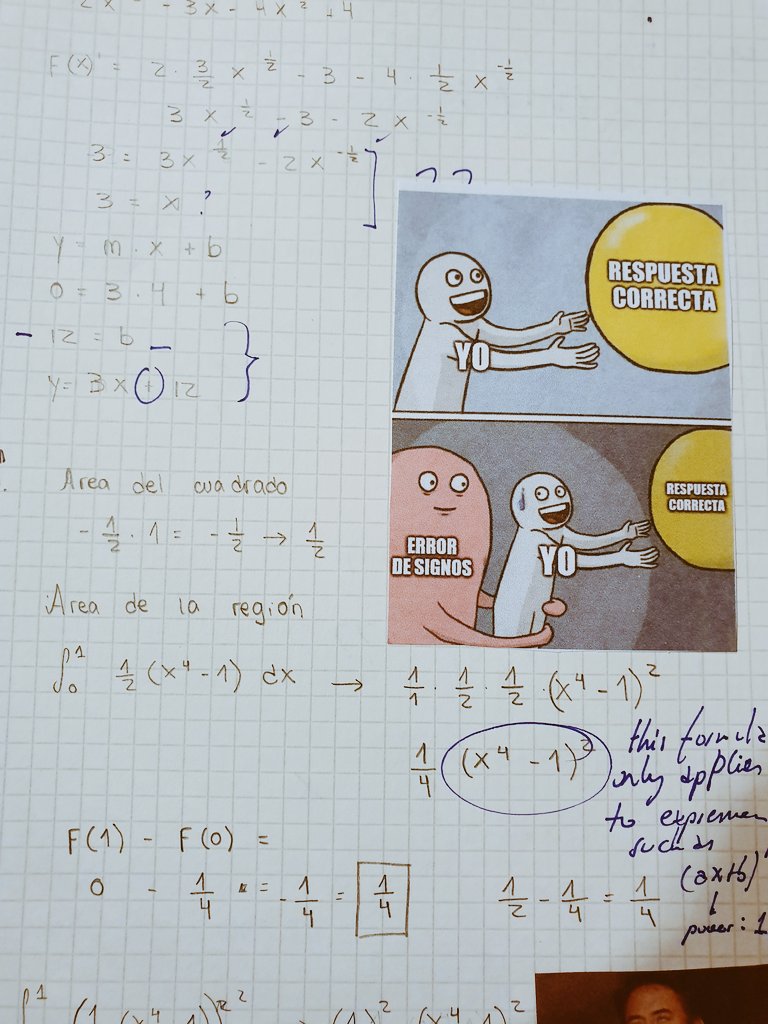 - 3x - 4x² + 4
F(x)' = 2 · 3/2 x^1/2 - 3 - 4 · 1/2 x^-1/2
3x^1/2 - 3 - 2x^-1/2
3 = 3x^1/2 - 2x^-1/2
3 = x ?
y = m · x + b
0 = 3 · 4 + b
- 12 = b
y = 3x + 12
RESPUESTA
CORRECTA
YO
RESPUESTA
CORRECTA
ERROR
DE SIGNOS
YO
Area del cuadrado
-1/2 · 1 = -1/2 → 1/2
Area de la región
∫₀¹ 1/2 (x⁴ - 1) dx → 1/1 · 1/2 · 1/2 · (x⁴ - 1)²
1/4 (x⁴ - 1)²
this formula
only applies
to
such as
(ax+b)
↓
power: 1
F(1) - F(0) =
0 - 1/4 = -1/4 = 1/4
1/2 - 1/4 = 1/4